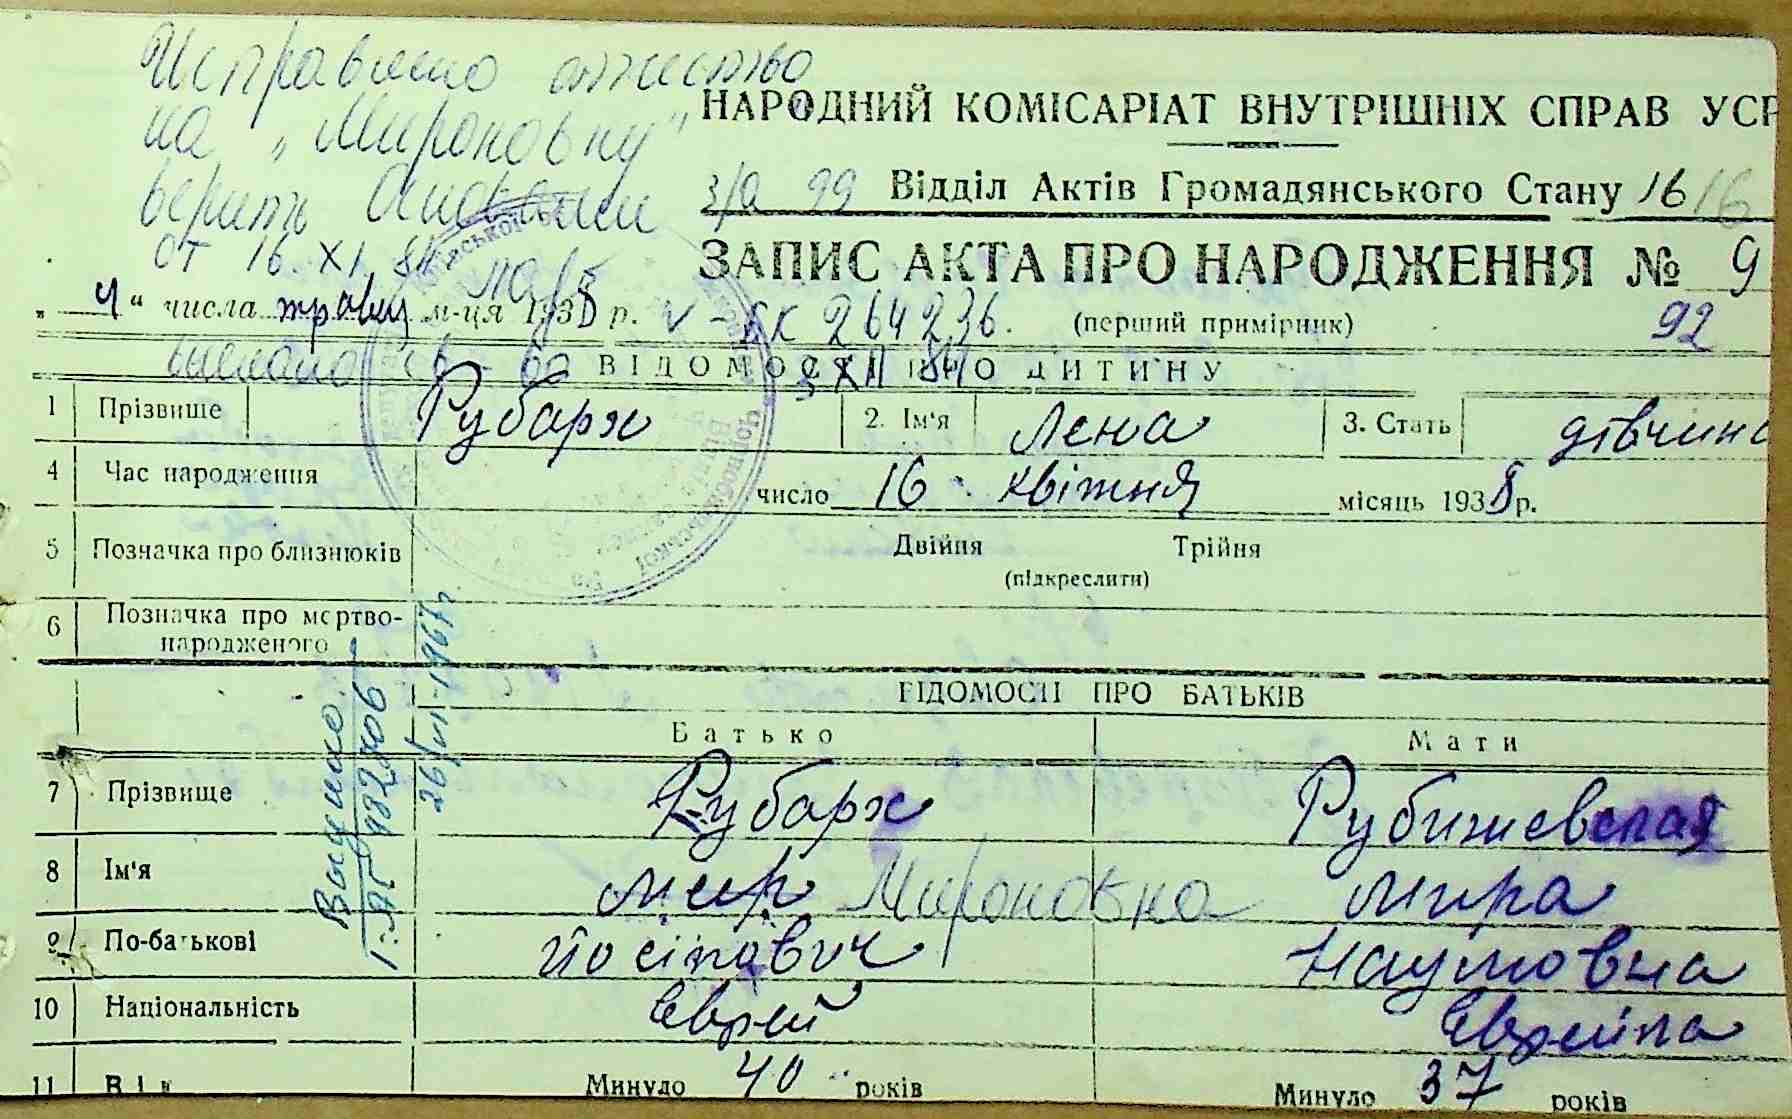 Исправлено отчество
на „Мироновну"
верить
от 16 XI 84
НАРОДНИЙ КОМІСАРІАТ ВНУТРІШНІХ СПРАВ УСР
з/а 99 Відділ Актів Громадянського Стану 16 16
ЗАПИС АКТА ПРО НАРОДЖЕННЯ № 9
„ 4 " числа травц м-ця 1938 р. V-БК 264236. (перший примірник) 92
ВІДОМОСТІ ПРО ДИТИНУ
3 XII 84
1 Прізвище Рубарх 2. Ім'я Лена 3. Стать дівчина
4 Час народження число 16 квітня місяць 1938 р.
5 Позначка про близнюків Двійня Трійня
(підкреслити)
6 Позначка про мертво-
народженого
Выдано
I-ЯГ 982706
26/VI-1967г.
ВІДОМОСТІ ПРО БАТЬКІВ
Батько Мати
7 Прізвище Рубарх Рубижевская
8 Ім'я Меир Мироновна Мира
9 По-батькові Йосіпович Наумовна
10 Національність Єврей Єврейка
11 Вік Минуло 40 років Минуло 37 років